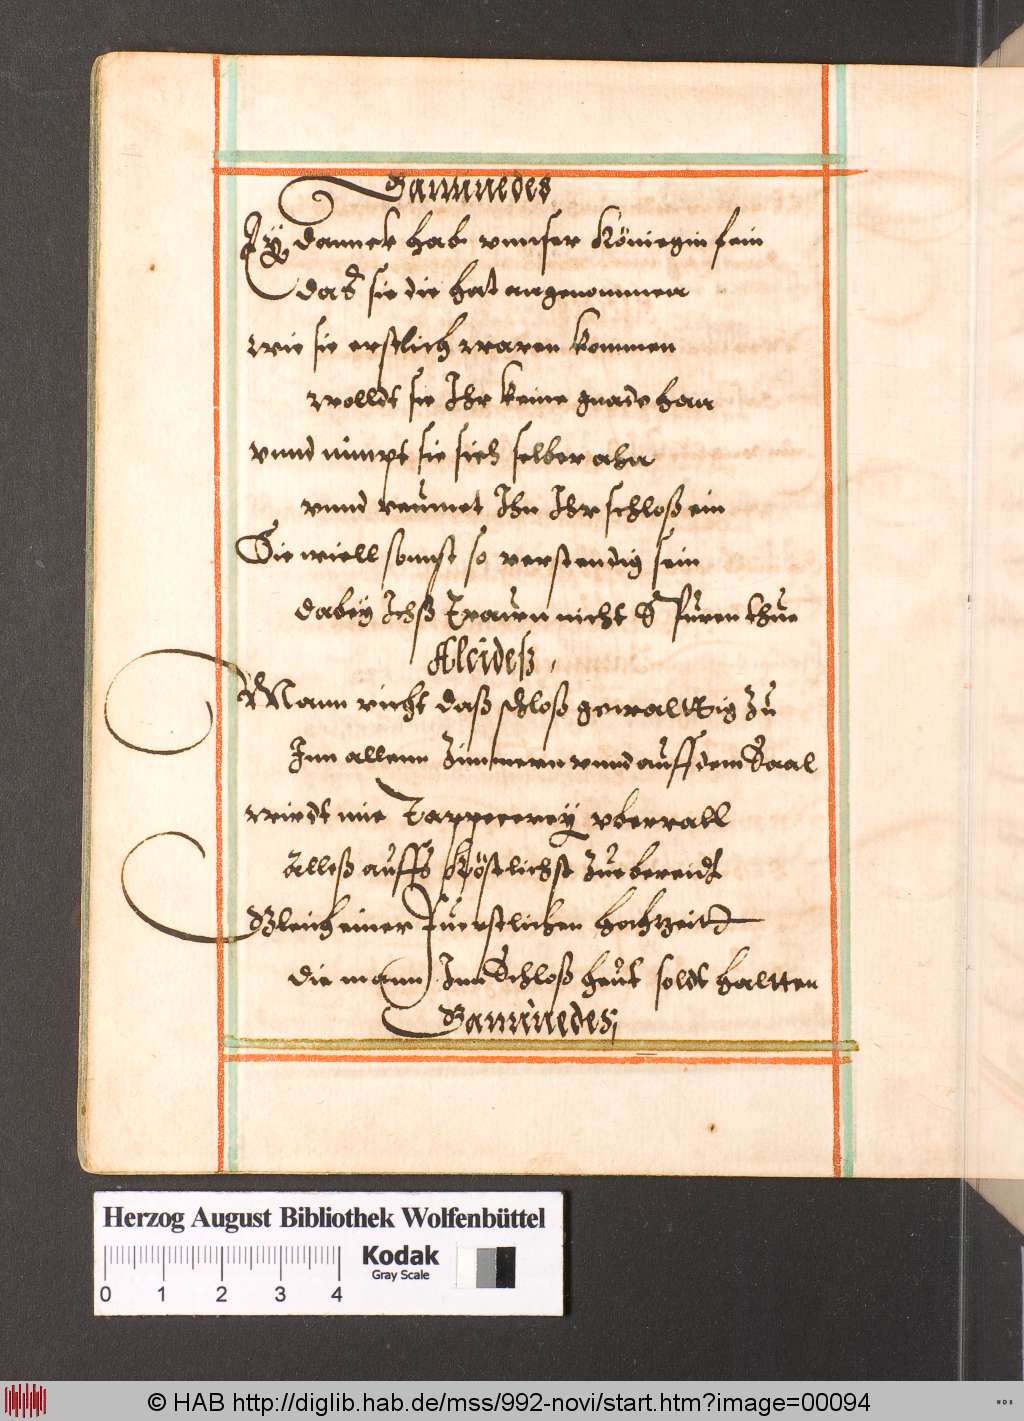 Ganimedes
Ey danck hab vnnser Köniegin fein
daß sie die hat angenommen
wie sie erstlich waren kommen
wolldt sie Ihr keine gnade han
vnnd nimpt sie sich selber ahn
vnnd reumet Ihn Ihr schloß ein
Sie wiell sonnst so verstendig sein
dabey Ichß Trauen nicht Spuren thue
Alcideß,
Mann richt daß schloß gewalttig zu
Inn allenn Zimmern vnnd auff dem Saal
wirdt mit Tappecerey vberall
Alleß auffs Köstlichst Zue bereidt
Gleich einer Fuerstlichen hochzeitt
die mann Inn Schloß heut soldt haltten
Ganimedes;
Herzog August Bibliothek Wolfenbüttel
Kodak
Gray Scale
0 1 2 3 4
© HAB http://diglib.hab.de/mss/992-novi/start.htm?image=00094